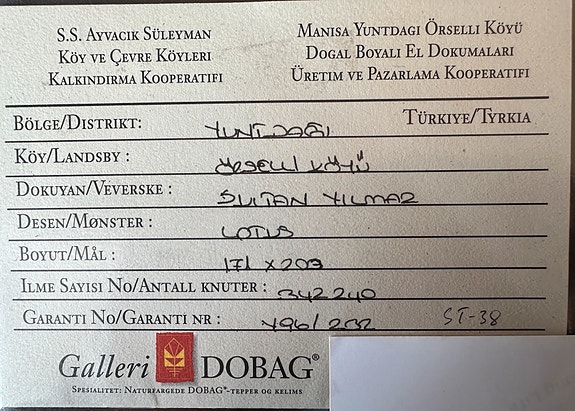 S.S. AYVACIK SÜLEYMAN
KÖY VE ÇEVRE KÖYLERI
KALKINDIRMA KOOPERATIFI
MANISA YUNTDAGI ÖRSELLI KÖYÜ
DOGAL BOYALI EL DOKUMALARI
ÜRETIM VE PAZARLAMA KOOPERATIFI
BÖLGE/DISTRIKT: YUNTDAĞI TÜRKIYE/TYRKIA
KÖY/LANDSBY : ÖRSELLİ KÖYÜ
DOKUYAN/VEVERSKE : SULTAN YILMAZ
DESEN/MØNSTER : LOTUS
BOYUT/MÅL : 171 x 209
ILME SAYISI NO/ANTALL KNUTER : 342240
GARANTI NO/GARANTI NR : 496/232 ST-38
Galleri DOBAG®
SPESIALITET: NATURFARGEDE DOBAG®-TEPPER OG KELIMS